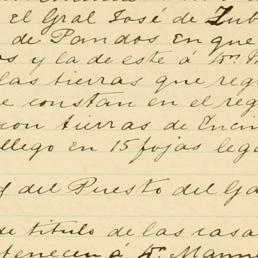 el Gral José de Zub
de Pandos en que
os y la de este á Dn
las tierras que reg
e constan en el reg
con tierras de Encin
llego en 15 fojas leg
del Puesto del Ga
de titulo de las casa
tenecen á Dn Manue